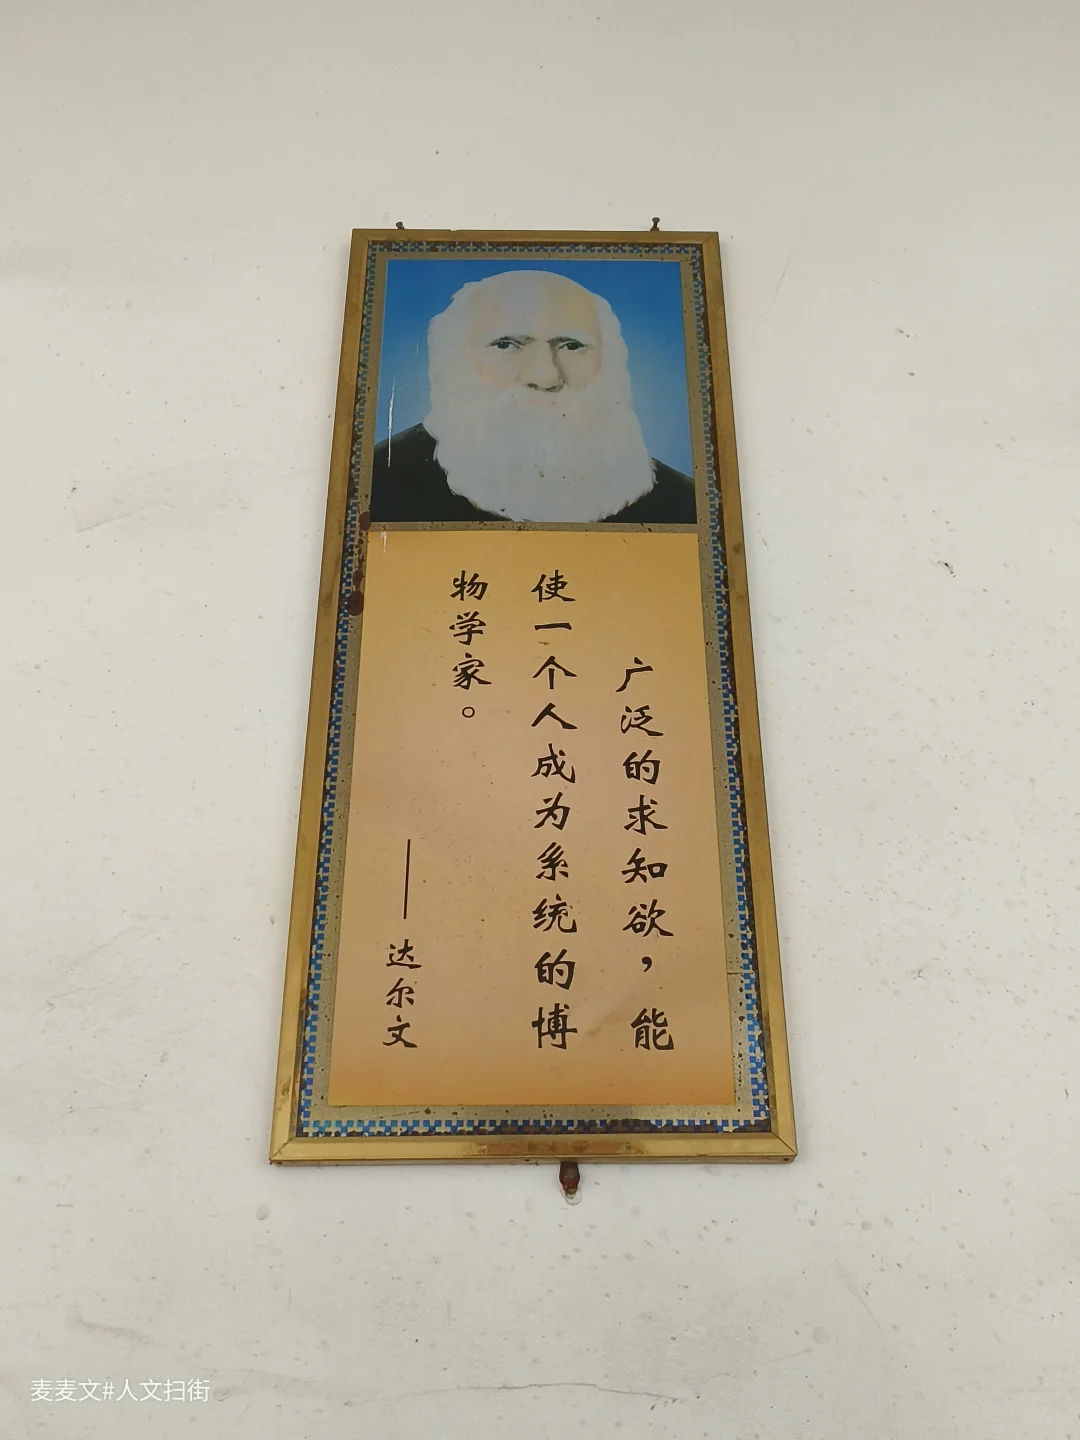 广泛的求知欲，能
使一个人成为系统的博
物学家。
——达尔文
麦麦文#人文扫街